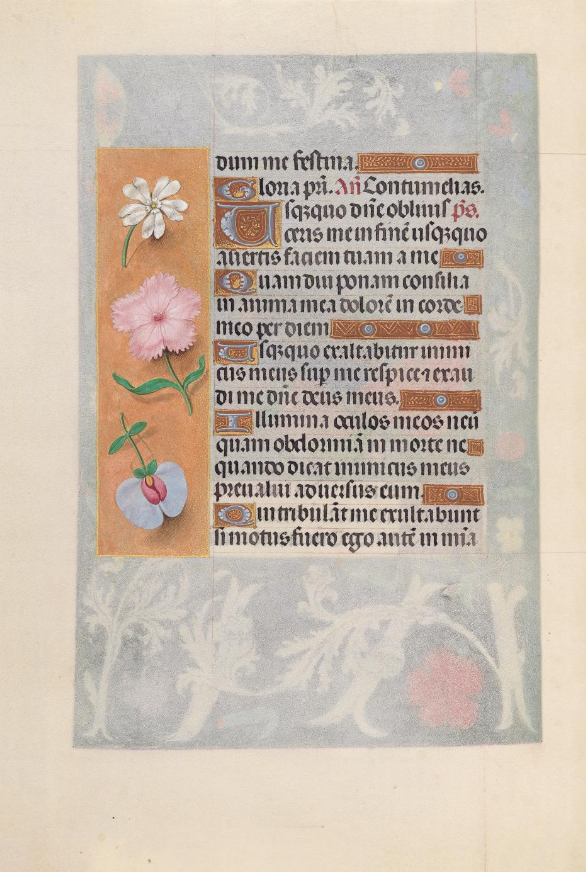 dum me festina.
Gloria pr̄i. An̄ Contumelias.
Usq₃quo dn̄e obliuis ps̄.
ceris me in finē usq₃quo
auertis faciem tuam a me
Quam diu ponam consilia
in anima mea dolorē in corde
meo per diem
Usq₃quo exaltabitur inimi
cus meus sup me respice ⁊ exau
di me dn̄e deus meus.
Illumina oculos meos neū
quam obdormiā in morte ne
quando dicat inimicus meus
preualui aduersus eum.
Qui tribulāt me exultabunt
si motus fuero ego autē in mīa